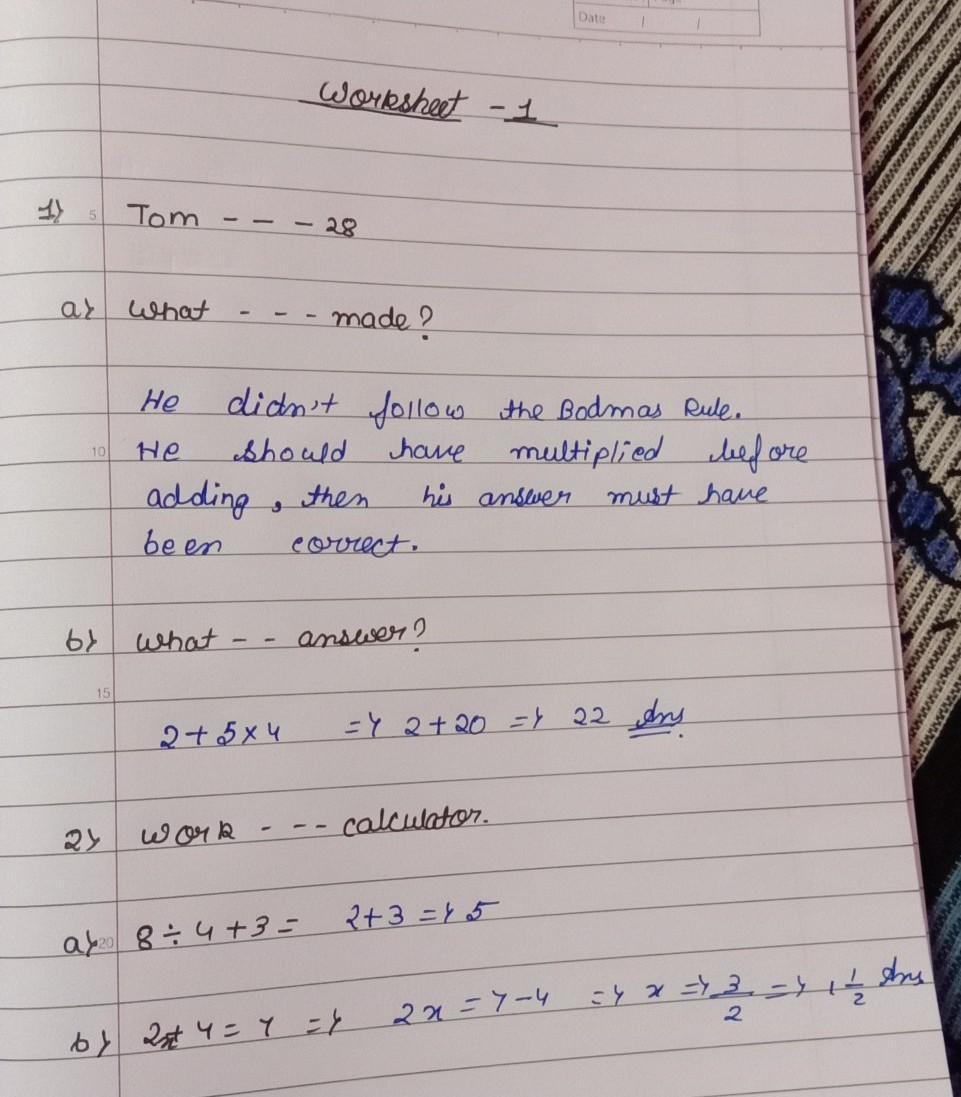 Date / /
Worksheet - 1
1) 5 Tom - - - 28
a) What - - - made?
He didn't follow the Bodmas Rule.
10 He should have multiplied before
adding, then his answer must have
been correct.
b) What - - answer?
15
2 + 5 × 4 => 2 + 20 => 22 Ans.
2) Work - - - calculator.
a) 20 8 ÷ 4 + 3 = 2 + 3 => 5
b) 2x + 4 = 7 => 2x = 7 - 4 => x => 3/2 => 1 1/2 Ans